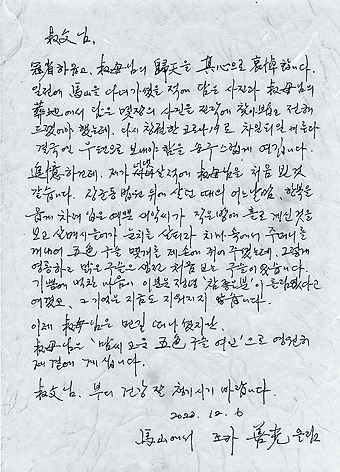 叔父님,
冠省하옵고, 叔母님의 歸天을 真心으로 哀悼합니다.
일전에 馬山을 다녀가셨을 적에 담은 사진과 叔母님의
葬地에서 담은 몇장의 사진을 진작에 찾아뵙고 전해
드렸어야 했는데, 다시 창궐한 코로나19로 차일피일 미루다
결국엔 우편으로 보내야 함을 송구스럽게 여깁니다.
追憶하건데, 제가 살적에 叔母님을 처음 뵌것
같습니다. 장군동 법원 뒤에 살던 때의 어느날임. 한복을
곱게 차려 입은 예쁜 새악씨가 작은방에 홀로 계신것을
보고 살며시 들어가 눈치를 살피다 치마 속에서 주머니를
꺼내어 五色 구슬 몇개를 제손에 쥐어 주었는데, 그렇게
영롱하고 맑은 구슬은 생전 처음 보는 구슬이었습니다.
기쁨에 벅찬 마음이 이분은 정말 '참 좋은 분'이 틀림없다고
여겼고, 그 기억은 지금도 지워지지 않습니다.
이제 叔母님은 먼길 떠나셨지만,
叔母님은 '맘씨 고운 五色 구슬 여인'으로 영원히
제 곁에 계십니다.
叔父님, 부디 건강 잘 챙기시기 바랍니다.
2020. 12. 6
馬山에서 조카 올림